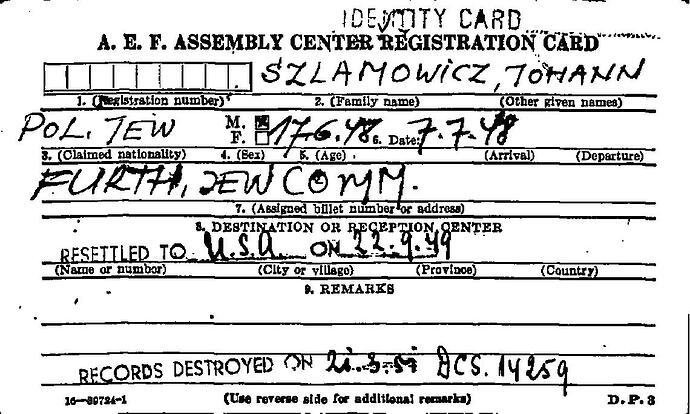 IDENTITY CARD
A. E. F. ASSEMBLY CENTER REGISTRATION CARD
SZLAMOWICZ, JOHANN
1. (Registration number) 2. (Family name) (Other given names)
POL. JEW M. F. 17.6.48 6. Date: 7.7.48
3. (Claimed nationality) 4. (Sex) 5. (Age) (Arrival) (Departure)
FURTH, JEW COMM.
7. (Assigned billet number or address)
8. DESTINATION OR RECEPTION CENTER
RESETTLED TO U.S.A. ON 22.9.49
(Name or number) (City or village) (Province) (Country)
9. REMARKS
RECORDS DESTROYED ON DCS. 14259
16—39724-1 (Use reverse side for additional remarks) D.P. 3